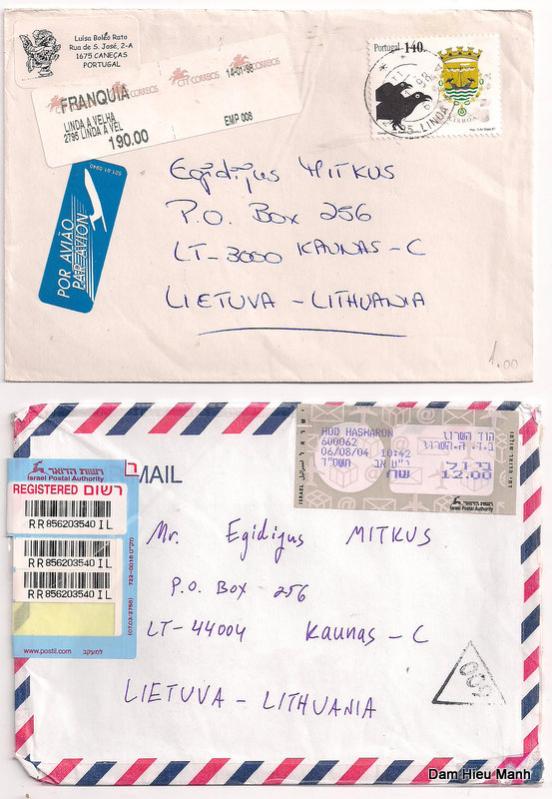 Luisa Boléo Rato
Rua de S. José, 2-A
1675 CANEÇAS
PORTUGAL
CTT CORREIOS
14-01-98
FRANQUIA
LINDA A VELHA
2795 LINDA A VEL
190.00
EMP 008
Portugal 140.
LISBOA
2795 LINDA
521 01 0940
POR AVIÃO
PAR AVION
Egidijus MITKUS
P.O. Box 256
LT-3000 KAUNAS-C
LIETUVA - LITHUANIA
1.00
MAIL
רשות הדואר
Israel Postal Authority
REGISTERED רשום
RR 856203540 IL
RR 856203540 IL
RR 856203540 IL
www.postil.com למעקב
HOD HASHARON
600062
06/08/04 10:42
י"ט אב תשס"ד
הוד השרון
12.00
ישראל ISRAEL
רשות הדואר
Israel Postal Authority
Mr. Egidijus MITKUS
P.O. Box 256
LT-44004 Kaunas - C
LIETUVA - LITHUANIA
000
Dam Hieu Manh